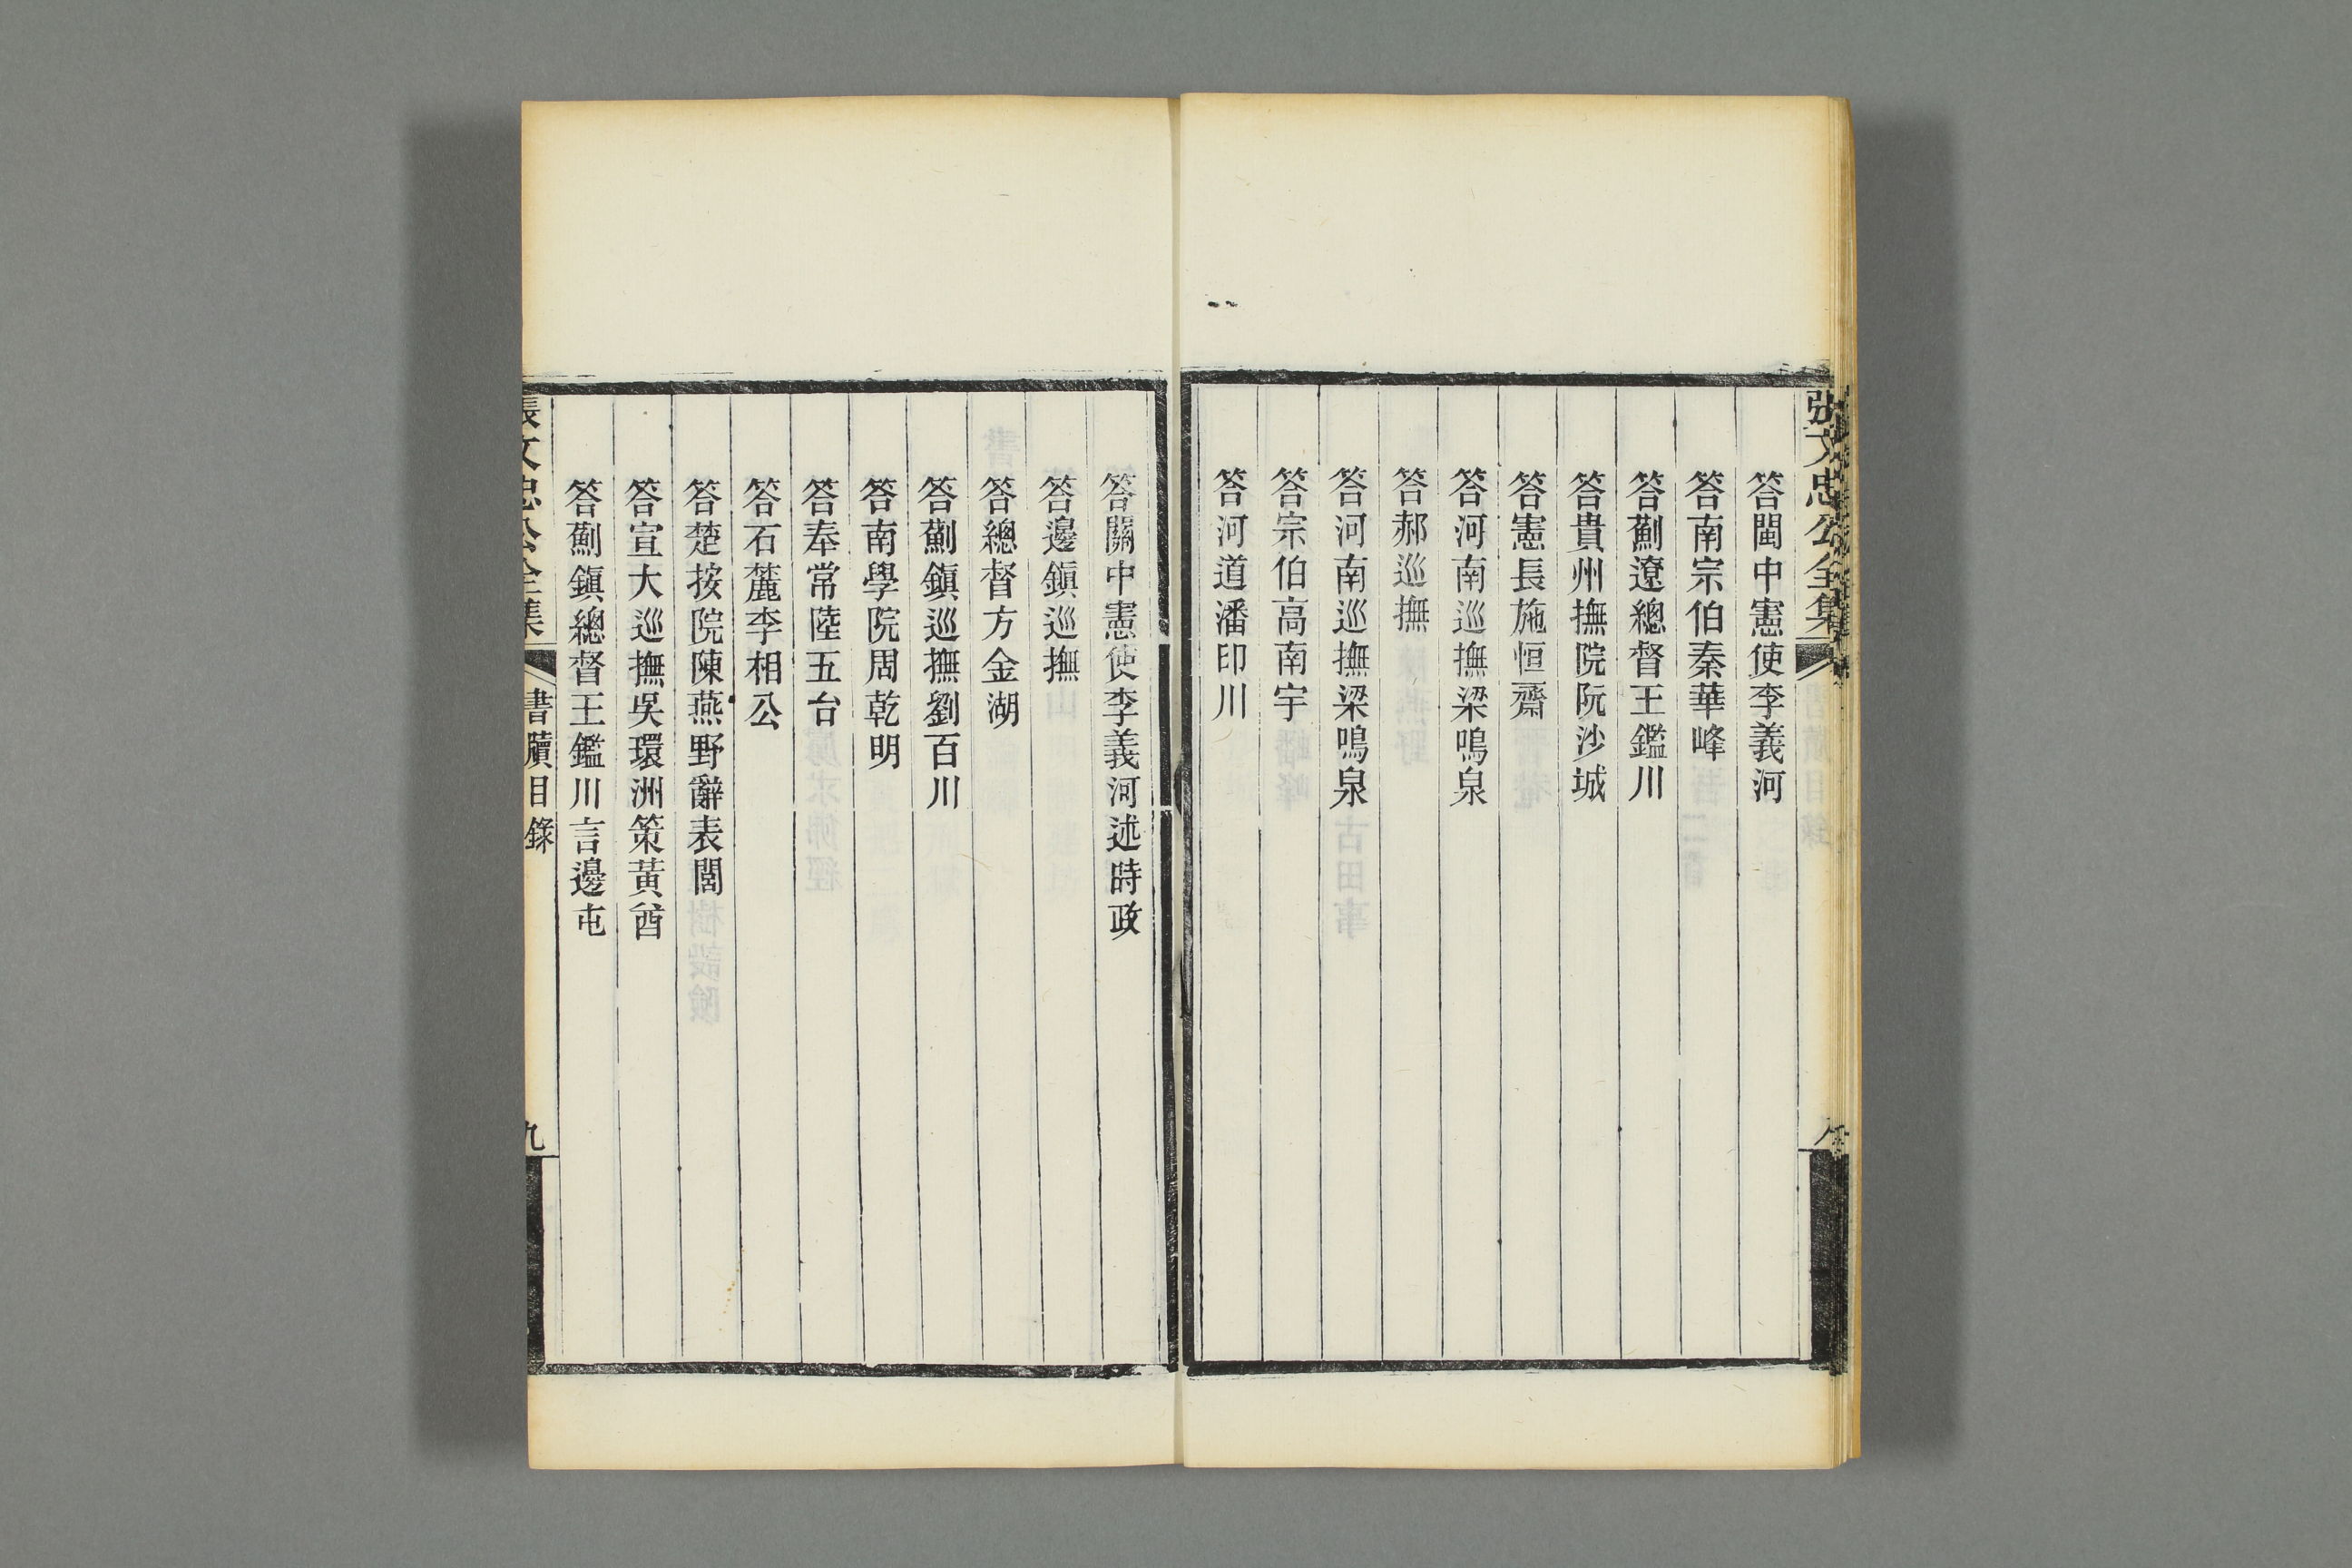 張文忠公全集
答閩中憲使李義河
答南宗伯秦華峰
答薊遼總督王鑑川
答貴州撫院阮沙城
答憲長施恒齋
答河南巡撫梁鳴泉
答郝巡撫
答河南巡撫梁鳴泉
答宗伯高南宇
答河道潘印川
答關中憲使李義河述時政
答邊鎭巡撫
答總督方金湖
答薊鎭巡撫劉百川
答南學院周乾明
答奉常陸五台
答石麓李相公
答楚按院陳燕野辭表閭
答宣大巡撫吳環洲策黃酋
答薊鎭總督王鑑川言邊屯
張文忠公全集
書牘目錄
九